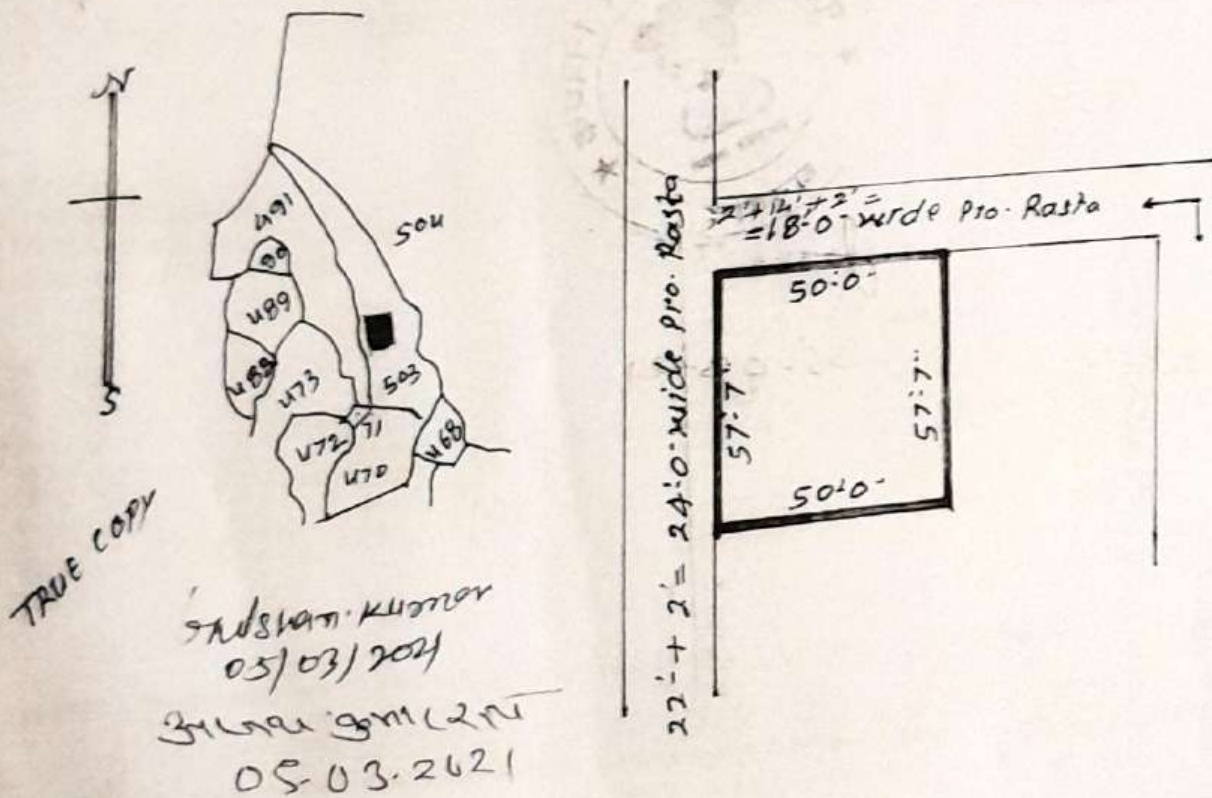 N
S
491
90
489
488
473
472
71
470
468
503
504
TRUE COPY
Kumar
05/03/2021
05.03.2021
22'+2'=24'-0" wide Pro. Rasta
2'+14'+2'=
=18'-0" wide Pro. Rasta
50'-0"
57'-7"
57'-7"
50'-0"